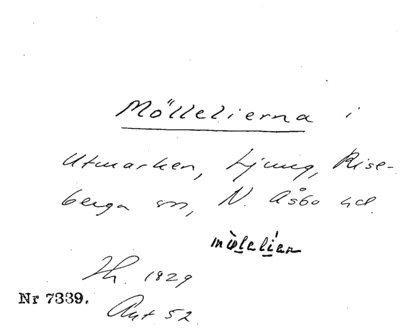 Möllelierna i
Utmarken, Ljung, Rise-
berga sn, N. Åsbo hd.
mölelien
Ih. 1929
Nr 7339.
Ant 52